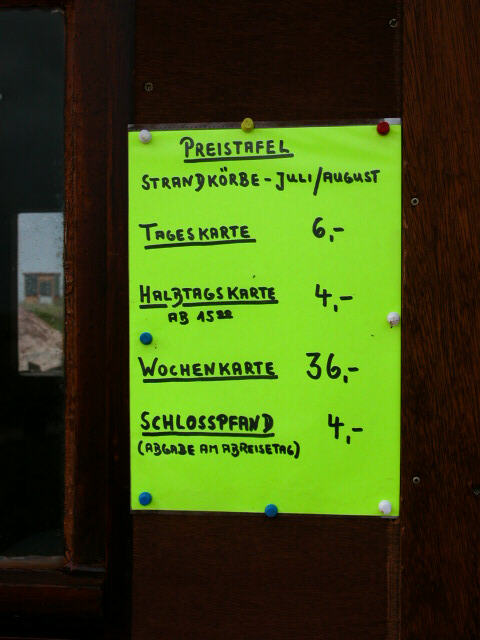 PREISTAFEL
STRANDKÖRBE - JULI/AUGUST
TAGESKARTE 6,-
HALBTAGSKARTE 4,-
AB 15⁰⁰
WOCHENKARTE 36,-
SCHLOSSPFAND 4,-
(ABGABE AM ABREISETAG)